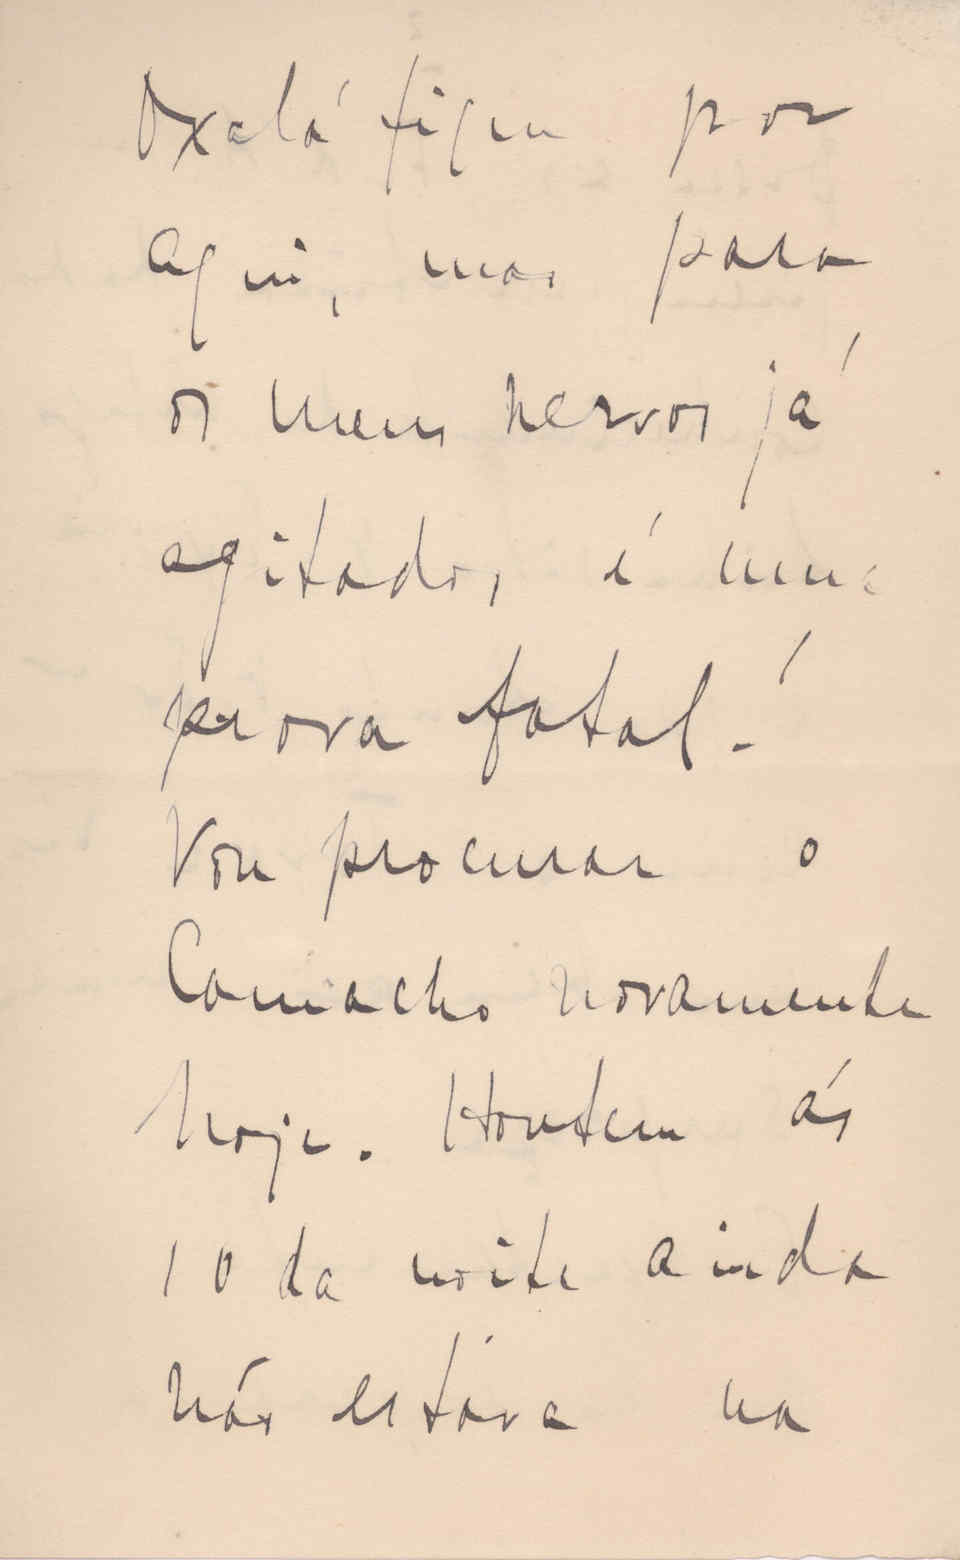 Oxalá fique por
aqui, mas para
os meus nervos já
agitados, é uma
prova fatal!
Vou procurar o
Camacho novamente
hoje. Hontem ás
10 da noite ainda
não estáva na